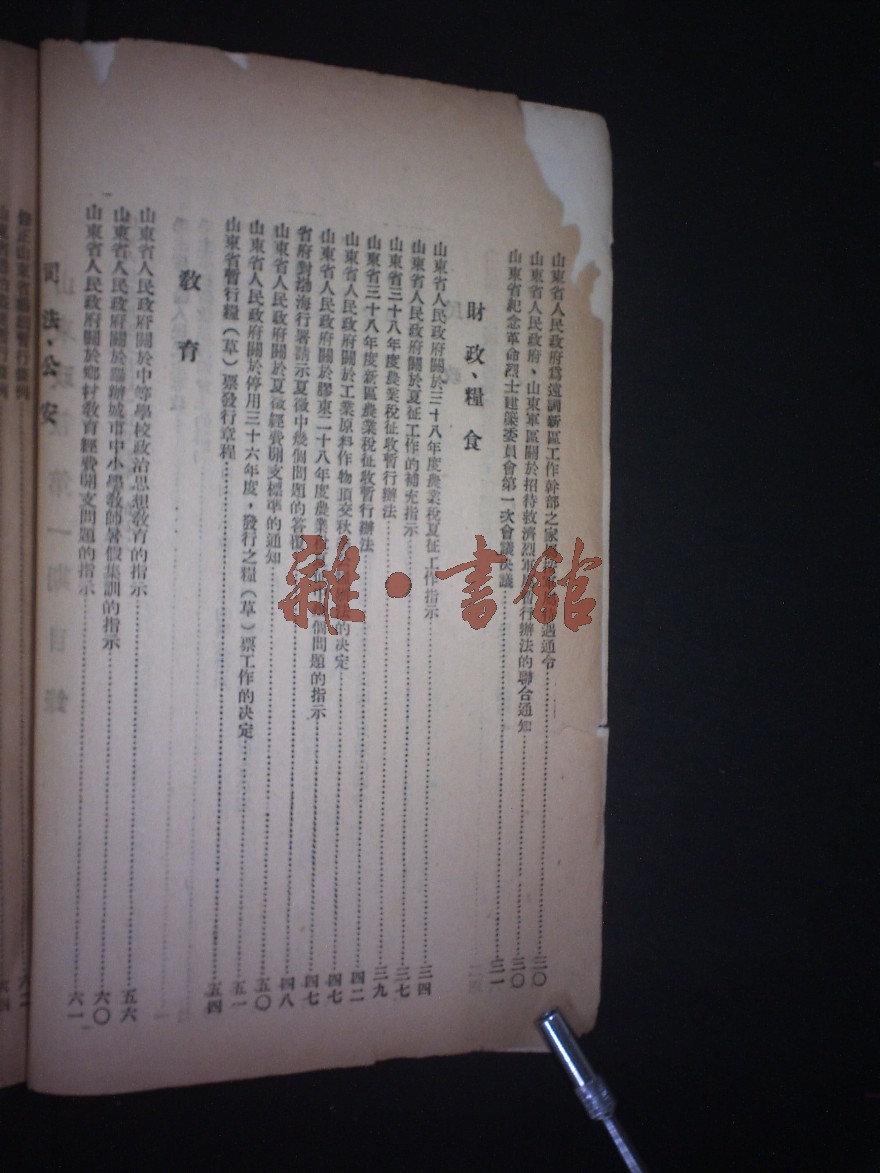 山東省人民政府為遠調新區工作幹部之家遇通令……三〇
山東省人民政府、山東軍區關於招待救濟烈軍屬暫行辦法的聯合通知……三〇
山東省紀念革命烈士建築委員會第一次會議決議……三一
財政、糧食
山東省人民政府關於三十八年度農業稅夏征工作指示……三四
山東省人民政府關於夏征工作的補充指示……三七
山東省三十八年度農業稅征收暫行辦法……三九
山東省三十八年度新區農業稅征收暫行辦法……四二
山東省人民政府關於工業原料作物頂交秋的決定……四七
山東省人民政府關於膠東二十八年度農業稅個問題的指示……四七
省府對渤海行署請示夏徵中幾個問題的答復……四八
山東省人民政府關於夏徵經費開支標準的通知……五〇
山東省人民政府關於停用三十六年度，發行之糧（草）票工作的決定……五一
山東省暫行糧（草）票發行章程……五四
教育
山東省人民政府關於中等學校政治思想教育的指示……五六
山東省人民政府關於聯辦城市中小學教師暑假集訓的指示……六〇
山東省人民政府關於鄉村教育經費開支問題的指示……六一
司法、公安
修正山東省暫行條例
雜·書館